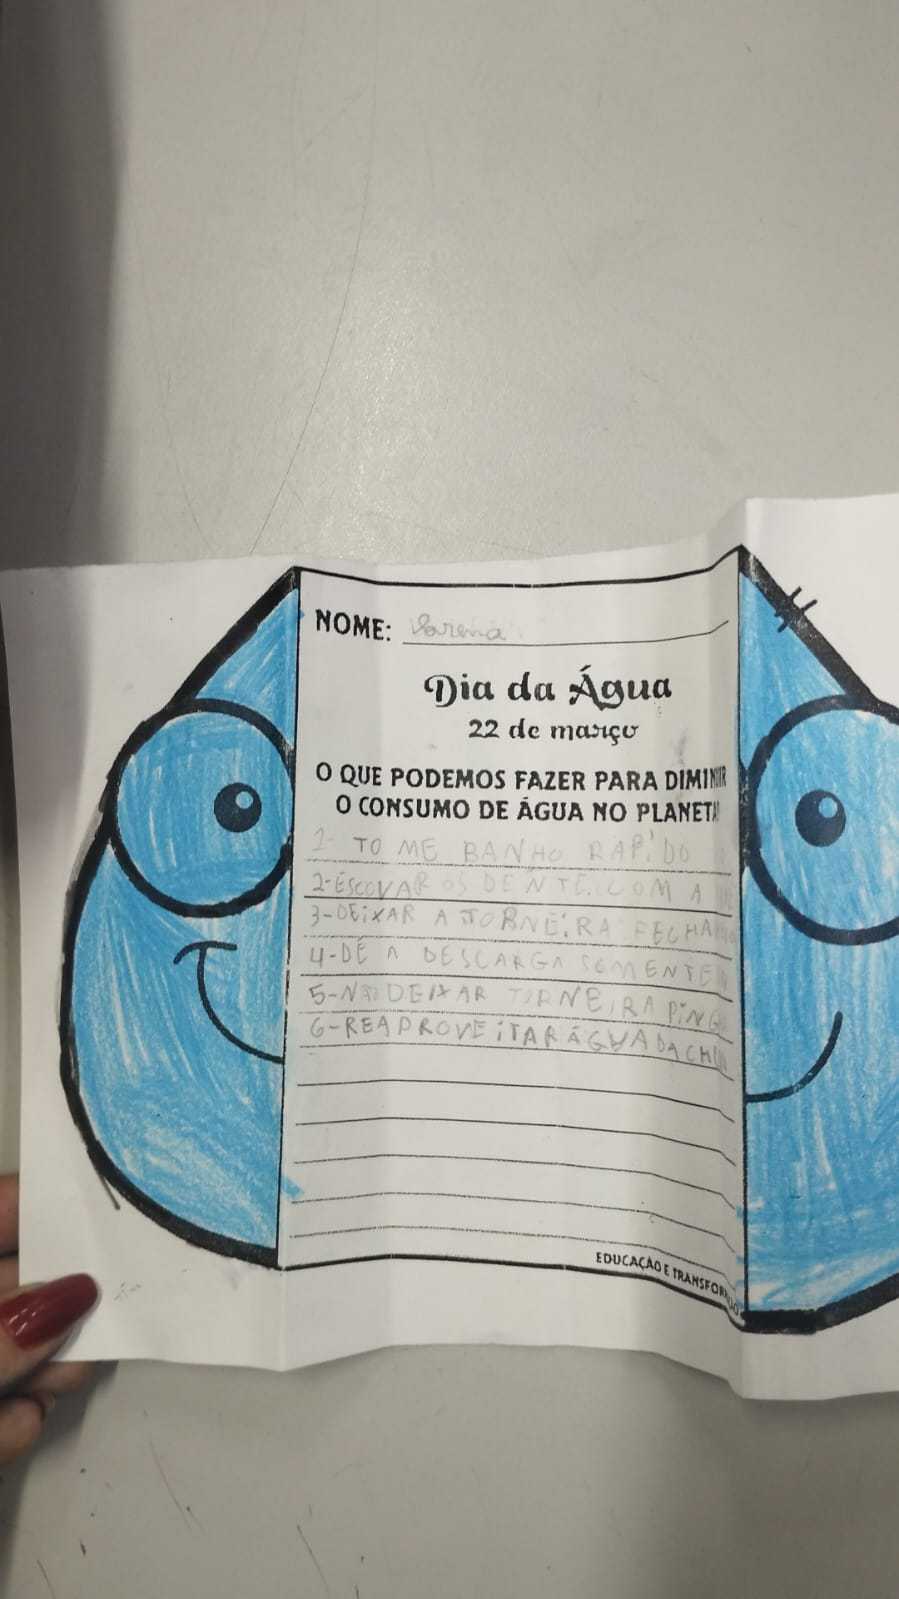 NOME: Lorena
Dia da Água
22 de março
O QUE PODEMOS FAZER PARA DIMINUIR
O CONSUMO DE ÁGUA NO PLANETA
1- TO ME BANHO RAPIDO
2-ESCOVAR OS DENTE COM A
3-DEIXAR A TORNEIRA FECHA
4-DÊ A DESCARGA SOMENTE
5-NÃO DEIXAR TORNEIRA PING
6-REAPROVEITAR ÁGUA DA CHU
EDUCAÇÃO E TRANSFORMAÇÃO